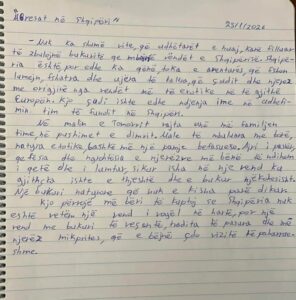 "Aventurat në Shqipëri"
25/1/2026
-Nuk ka shumë vite, që udhëtarët e huaj, kanë filluar
të zbulojnë bukuritë që mbajnë vendet e Shqipërisë. Shqipë-
ria është për edhe ka qenë, toka e
fshatra dhe ujëra të bukura, që sadit dhe njerëz
me origjinë nga vendet më të ekzotike në të gjithë
Europën. Kjo sadi ishte edhe ndjenja ime në udhëti-
min tim të fundit në Shqipëri.
Në malet e Tomorrit sajta unë më familjen
time, në pushimet e dimrit. Male të mbuluara me borë,
natyra ekzotike, bashkë me një pamje befasuese. Ajri i pastër,
qetësia dhe ngrohtësia e njerëzve më bënë të ndihem
i qetë dhe i lumtur, sikur isha në një vend ku
gjithçka ishte e thjeshtë dhe e bukur njëkohësisht.
Një bukuri natyrore që nuk e kisha parë diku.
Kjo përvojë më bëri të kuptoj se Shqipëria nuk
është vetëm një vend i vogël në hartë, por një
vend me bukuri të veçantë, tradita të pasura dhe me
njerëz mikpritës, që e bëjnë çdo vizitë të paharru-
eshme.